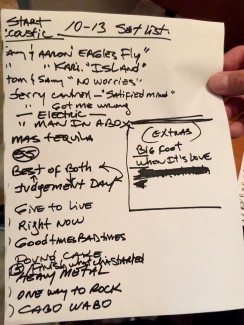 START
ACOUSTIC 10-13 Set List
Sammy & AARON EAGLES Fly"
" " KARI. "ISLAND"
tom & Samy "No worries"
Jerry Cantrell - "Satisfied mind"
" " Got me wrong
— Electric —
" MAN IN A BOX
MAS TEQUILA
Best of Both
Judgement Day
GIVE TO LIVE
Right Now
GOOD TIMES BAD TIMES
POUND CAKE
FINISH what ya STARTED
HEAVY METAL
ONE WAY TO ROCK
CABO WABO
(EXTRAS)
BIG FOOT
WHEN IT'S LOVE